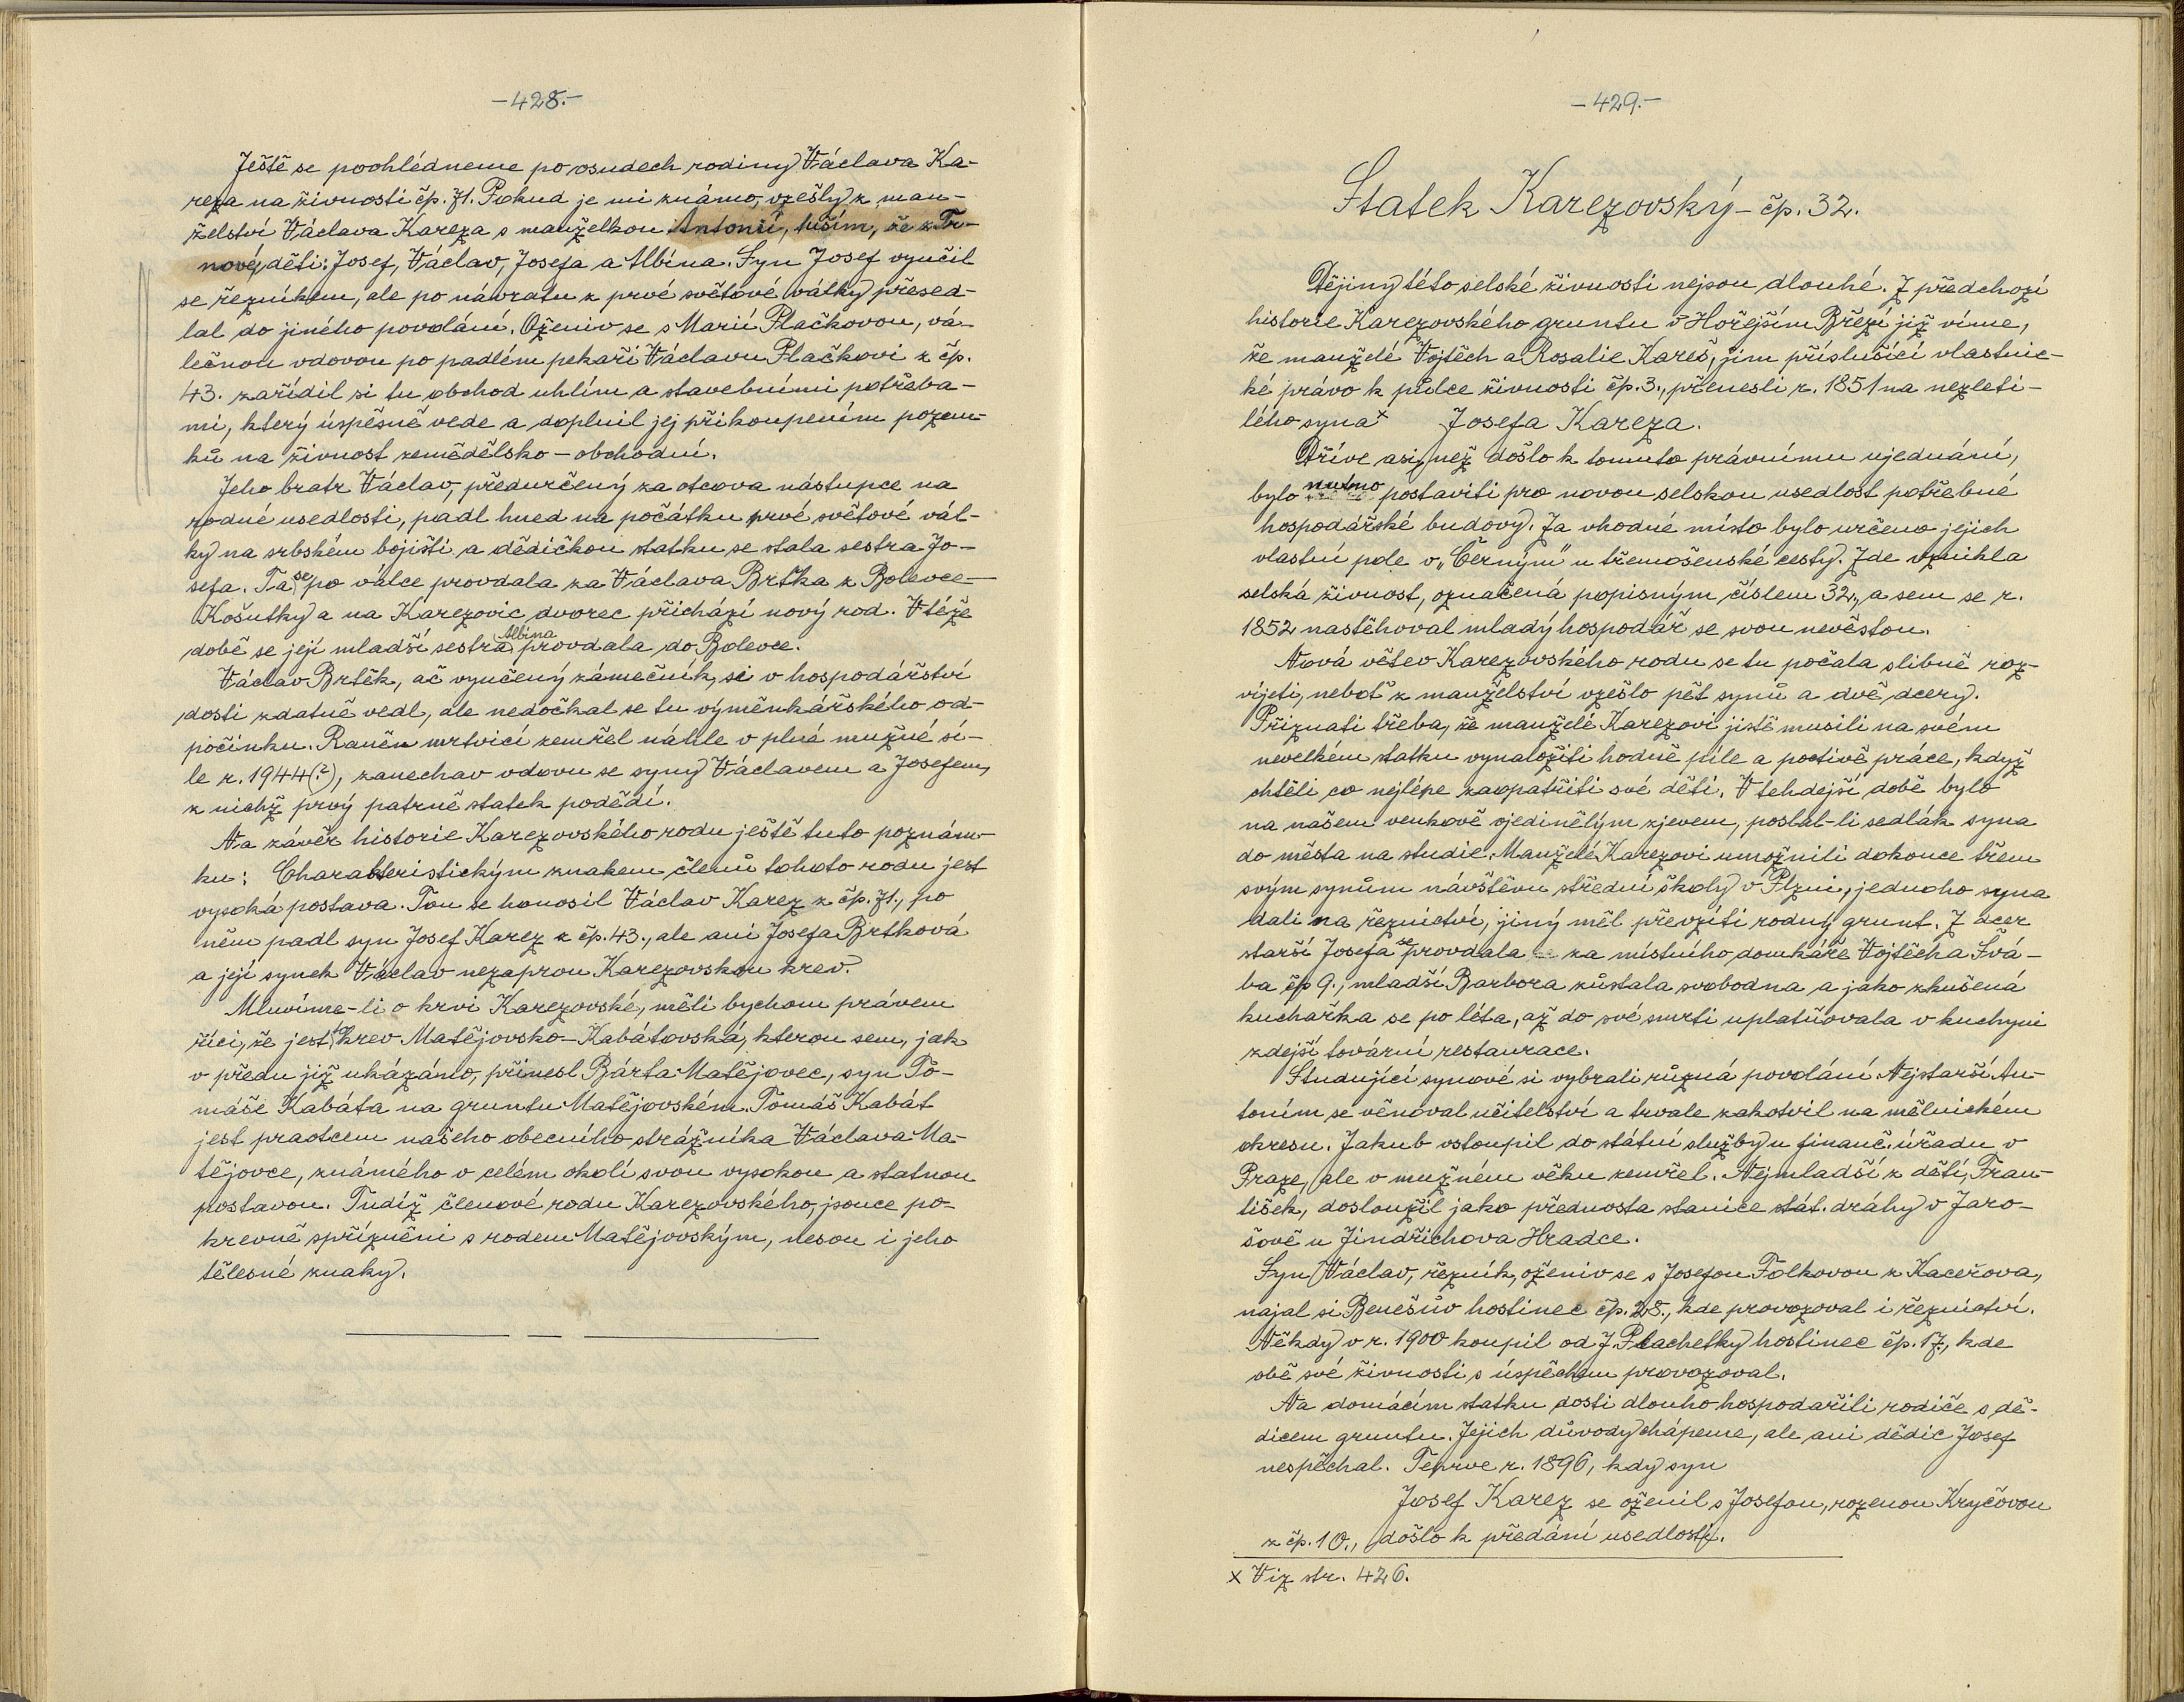 -428.-
Ještě se poohlédneme po osudech rodiny Václava Ka-
reza na živnosti čp. 71. Pokud je mi známo, vzešly z man-
želství Václava Kareza s manželkou Antonií, tuším, že z Tr-
nové, děti: Josef, Václav, Josefa a Albína. Syn Josef vyučil
se řezníkem, ale po návratu z prvé světové války přesed-
lal do jiného povolání. Oženiv se s Marií Plačkovou, vá-
lečnou vdovou po padlém pekaři Václavu Plačkovi z čp.
43. zařídil si tu obchod uhlím a stavebními potřeba-
mi, který úspěšně vede a doplnil jej přikoupením pozem-
ků na živnost zemědělsko-obchodní.
Jeho bratr Václav, předurčený za otcova nástupce na
rodné usedlosti, padl hned na počátku prvé světové vál-
ky na srbském bojišti a dědičkou statku se stala sestra Jo-
sefa. Ta se po válce provdala za Václava Brťka z Bolevce-
Košutky a na Karezovic dvorec přichází nový rod. V téže
době se její mladší sestra Albína provdala do Bolevce.
Václav Brtěk, ač vyučený zámečník, si v hospodářství
dosti zdatně vedl, ale nedočkal se tu výměnkářského od-
počinku. Raněn mrtvicí zemřel náhle v plné mužné sí-
le r. 1944(?), zanechav vdovu se syny Václavem a Josefem,
z nichž prvý patrně statek podědí.
Na závěr historie Karezovského rodu ještě tuto poznám-
ku: Charakteristickým znakem členů tohoto rodu jest
vysoká postava. Tou se honosil Václav Karez z čp. 71., po
něm padl syn Josef Karez z čp. 43., ale ani Josefa Brtková
a její synek Václav nezaprou Karezovskou krev.
Mluvíme-li o krvi Karezovské, měli bychom právem
říci, že jest to krev Matějovsko-Kabátovská, kterou sem, jak
v předu již ukázáno, přinesl Bárta Matějovec, syn To-
máše Kabáta na gruntu Matějovském. Tomáš Kabát
jest praotcem našeho obecního strážníka Václava Ma-
tějovce, známého v celém okolí svou vysokou a statnou
postavou. Tudíž členové rodu Karezovského, jsouce po-
krevně spřízněni s rodem Matějovským, nesou i jeho
tělesné znaky.
-429.-
Statek Karezovský - čp. 32.
Dějiny této selské živnosti nejsou dlouhé. Z předchozí
historie Karezovského gruntu v Hořejším Březí již víme,
že manželé Vojtěch a Rosalie Kareš, jim příslušící vlastnic-
ké právo k půlce živnosti čp. 3., přenesli r. 1851 na nezleti-
lého syna x Josefa Kareza.
Dříve asi, než došlo k tomuto právnímu ujednání,
bylo nutno postaviti pro novou selskou usedlost potřebné
hospodářské budovy. Za vhodné místo bylo určeno jejich
vlastní pole v „Černým" u třemošenské cesty. Zde vznikla
selská živnost, označená popisným číslem 32., a sem se r.
1852 nastěhoval mladý hospodář se svou nevěstou.
Nová větev Karezovského rodu se tu počala slibně roz-
víjeti, neboť z manželství vzešlo pět synů a dvě dcery.
Přiznati třeba, že manželé Karezovi jistě musili na svém
nevelkém statku vynaložiti hodně píle a poctivé práce, když
chtěli co nejlépe zaopatřiti své děti. V tehdejší době bylo
na našem venkově ojedinělým zjevem, poslal-li sedlák syna
do města na studie. Manželé Karezovi umožnili dokonce třem
svým synům návštěvu střední školy v Plzni, jednoho syna
dali na řeznictví, jiný měl převzíti rodný grunt. Z dcer
starší Josefa se provdala za místního domkáře Vojtěcha Švá-
ba čp 9., mladší Barbora zůstala svobodna a jako zkušená
kuchařka se po léta, až do své smrti uplatňovala v kuchyni
zdejší tovární restaurace.
Studující synové si vybrali různá povolání. Nejstarší An-
tonín se věnoval učitelství a trvale zakotvil na mělnickém
okresu. Jakub vstoupil do státní služby u finanč. úřadu v
Praze, ale v mužném věku zemřel. Nejmladší z dětí, Fran-
tišek, dosloužil jako přednosta stanice stát. dráhy v Jaro-
šově u Jindřichova Hradce.
Syn Václav, řezník, oženiv se s Josefou Folkovou z Kaceřova,
najal si Benešův hostinec čp. 28., kde provozoval i řeznictví.
Někdy v r. 1900 koupil od J. Plachetky hostinec čp. 17., kde
obě své živnosti s úspěchem provozoval.
Na domácím statku dosti dlouho hospodařili rodiče s dě-
dicem gruntu. Jejich důvody chápeme, ale ani dědic Josef
nespěchal. Teprve r. 1896, kdy syn
Josef Karez se oženil s Josefou, rozenou Kryčovou
z čp. 10., došlo k předání usedlosti.
x Viz str. 426.